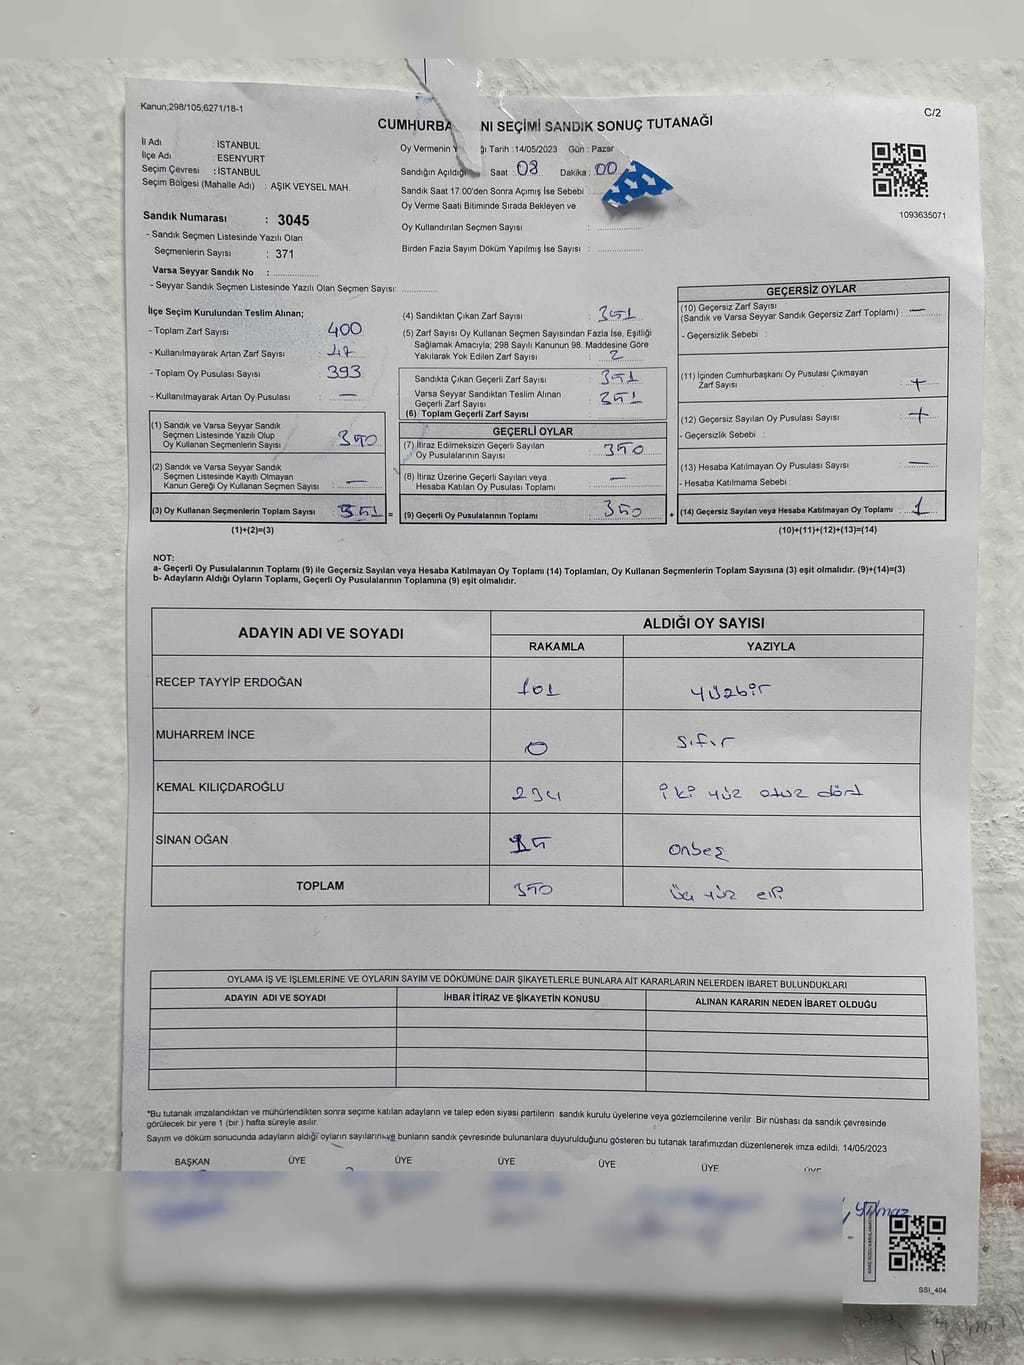 Kanun,298/105,6271/18-1
C/2
CUMHURBA NI SEÇİMİ SANDIK SONUÇ TUTANAĞI
İl Adı : İSTANBUL
İlçe Adı : ESENYURT
Seçim Çevresi : İSTANBUL
Seçim Bölgesi (Mahalle Adı) : AŞIK VEYSEL MAH.
Oy Vermenin Y ğı Tarih : 14/05/2023 Gün : Pazar
Sandığın Açıldığı Saat : 08 Dakika : 00
Sandık Saat 17:00'den Sonra Açımış İse Sebebi :
Oy Verme Saati Bitiminde Sırada Bekleyen ve
Oy Kullandırılan Seçmen Sayısı :
Birden Fazla Sayım Döküm Yapılmış İse Sayısı :
1093635071
Sandık Numarası : 3045
- Sandık Seçmen Listesinde Yazılı Olan
Seçmenlerin Sayısı : 371
Varsa Seyyar Sandık No :
- Seyyar Sandık Seçmen Listesinde Yazılı Olan Seçmen Sayısı:
İlçe Seçim Kurulundan Teslim Alınan;
- Toplam Zarf Sayısı : 400
- Kullanılmayarak Artan Zarf Sayısı : 47
- Toplam Oy Pusulası Sayısı : 393
- Kullanılmayarak Artan Oy Pusulası : —
(1) Sandık ve Varsa Seyyar Sandık
Seçmen Listesinde Yazılı Olup
Oy Kullanan Seçmenlerin Sayısı : 350
(2) Sandık ve Varsa Seyyar Sandık
Seçmen Listesinde Kayıtlı Olmayan
Kanun Gereği Oy Kullanan Seçmen Sayısı : —
(3) Oy Kullanan Seçmenlerin Toplam Sayısı : 351 =
(1)+(2)=(3)
(4) Sandıktan Çıkan Zarf Sayısı : 351
(5) Zarf Sayısı Oy Kullanan Seçmen Sayısından Fazla İse, Eşitliği
Sağlamak Amacıyla; 298 Sayılı Kanunun 98. Maddesine Göre
Yakılarak Yok Edilen Zarf Sayısı : 2
Sandıkta Çıkan Geçerli Zarf Sayısı : 351
Varsa Seyyar Sandıktan Teslim Alınan
Geçerli Zarf Sayısı : 351
(6) Toplam Geçerli Zarf Sayısı
GEÇERLİ OYLAR
(7) İtiraz Edilmeksizin Geçerli Sayılan
Oy Pusulalarının Sayısı : 350
(8) İtiraz Üzerine Geçerli Sayılan veya
Hesaba Katılan Oy Pusulası Toplamı : —
(9) Geçerli Oy Pusulalarının Toplamı : 350 +
GEÇERSİZ OYLAR
(10) Geçersiz Zarf Sayısı
(Sandık ve Varsa Seyyar Sandık Geçersiz Zarf Toplamı) : —
- Geçersizlik Sebebi :
(11) İçinden Cumhurbaşkanı Oy Pusulası Çıkmayan
Zarf Sayısı :
(12) Geçersiz Sayılan Oy Pusulası Sayısı :
- Geçersizlik Sebebi :
(13) Hesaba Katılmayan Oy Pusulası Sayısı : —
- Hesaba Katılmama Sebebi :
(14) Geçersiz Sayılan veya Hesaba Katılmayan Oy Toplamı : 1
(10)+(11)+(12)+(13)=(14)
NOT:
a- Geçerli Oy Pusulalarının Toplamı (9) ile Geçersiz Sayılan veya Hesaba Katılmayan Oy Toplamı (14) Toplamları, Oy Kullanan Seçmenlerin Toplam Sayısına (3) eşit olmalıdır. (9)+(14)=(3)
b- Adayların Aldığı Oyların Toplamı, Geçerli Oy Pusulalarının Toplamına (9) eşit olmalıdır.
ADAYIN ADI VE SOYADI
ALDIĞI OY SAYISI
RAKAMLA YAZIYLA
RECEP TAYYİP ERDOĞAN 101 yüzbir
MUHARREM İNCE 0 sıfır
KEMAL KILIÇDAROĞLU 234 iki yüz otuz dört
SİNAN OĞAN 15 onbeş
TOPLAM 350 üç yüz elli
OYLAMA İŞ VE İŞLEMLERİNE VE OYLARIN SAYIM VE DÖKÜMÜNE DAİR ŞİKAYETLERLE BUNLARA AİT KARARLARIN NELERDEN İBARET BULUNDUKLARI
ADAYIN ADI VE SOYADI İHBAR İTİRAZ VE ŞİKAYETİN KONUSU ALINAN KARARIN NEDEN İBARET OLDUĞU
*Bu tutanak imzalandıktan ve mühürlendikten sonra seçime katılan adayların ve talep eden siyasi partilerin sandık kurulu üyelerine veya gözlemcilerine verilir. Bir nüshası da sandık çevresinde
görülecek bir yere 1 (bir ) hafta süreyle asılır.
Sayım ve döküm sonucunda adayların aldığı oyların sayılarını ve bunların sandık çevresinde bulunanlara duyurulduğunu gösteren bu tutanak tarafımızdan düzenlenerek imza edildi. 14/05/2023
BAŞKAN ÜYE ÜYE ÜYE ÜYE ÜYE ÜYE
Yılmaz
SSI_404
RIP